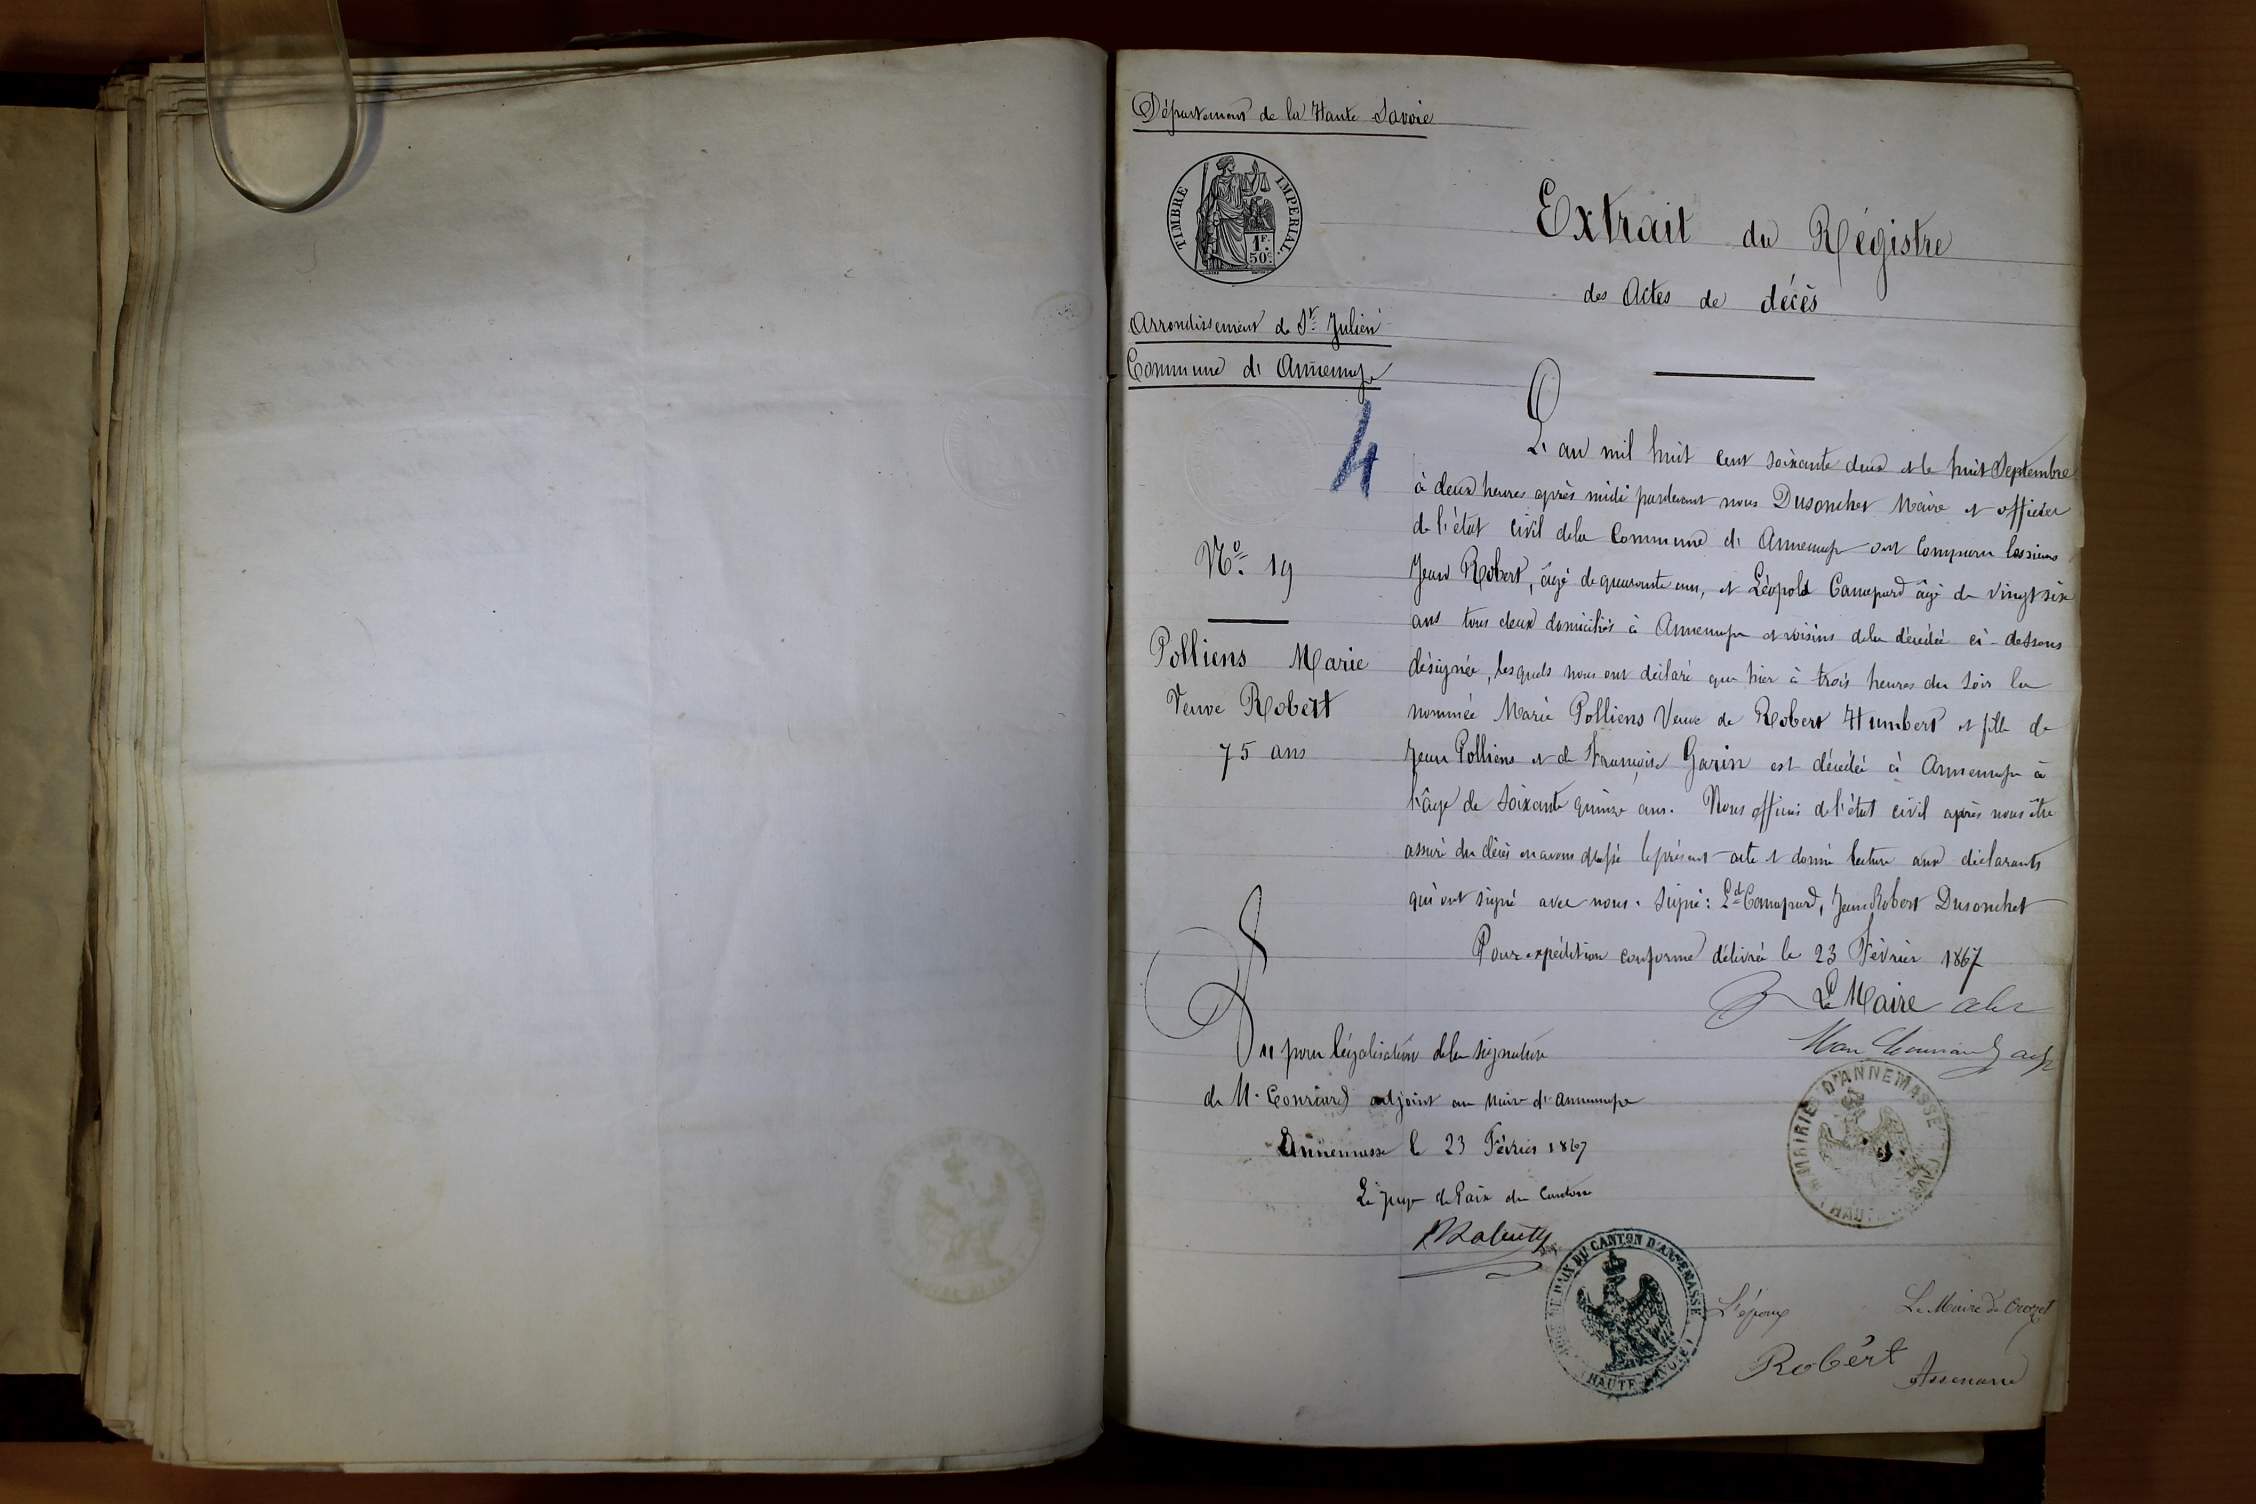 Département de la Haute Savoie
TIMBRE IMPERIAL
1F.
50C.
Extrait du Régistre
des Actes de décès
Arrondissement de St Julien
Commune d'Annemasse
4
N° 19
Polliens Marie
Veuve Robert
75 ans
L'an mil huit cent soixante deux et le huit Septembre
à deux heures après midi pardevant nous Dusonchet Maire et officier
de l'état civil de la Commune d'Annemasse ont comparu les sieurs
Jean Robert, âgé de quarante ans, et Léopold Canapard âgé de vingt six
ans tous deux domiciliés à Annemasse et voisins de la décédée ci-dessous
désignée, lesquels nous ont déclaré que hier à trois heures du soir la
nommée Marie Polliens Veuve de Robert Humbert et fille de
Jean Polliens et de Françoise Garin est décédée à Annemasse à
l'âge de soixante quinze ans. Nous officier de l'état civil après nous être
assuré du décès en avons dressé le présent acte et donné lecture aux déclarants
qui ont signé avec nous. Signé: Ld Canapard, Jean Robert Dusonchet
Pour expédition conforme délivrée le 23 Février 1867
Le Maire
Vu pour légalisation de la signature
de M. adjoint au Maire d'Annemasse
Annemasse le 23 Février 1867
Le juge de Paix du Canton
MAIRIE D'ANNEMASSE
DE PAIX DU CANTON D'ANNEMASSE
(HAUTE SAVOIE)
L'époux
Robért
Le Maire de Crozet